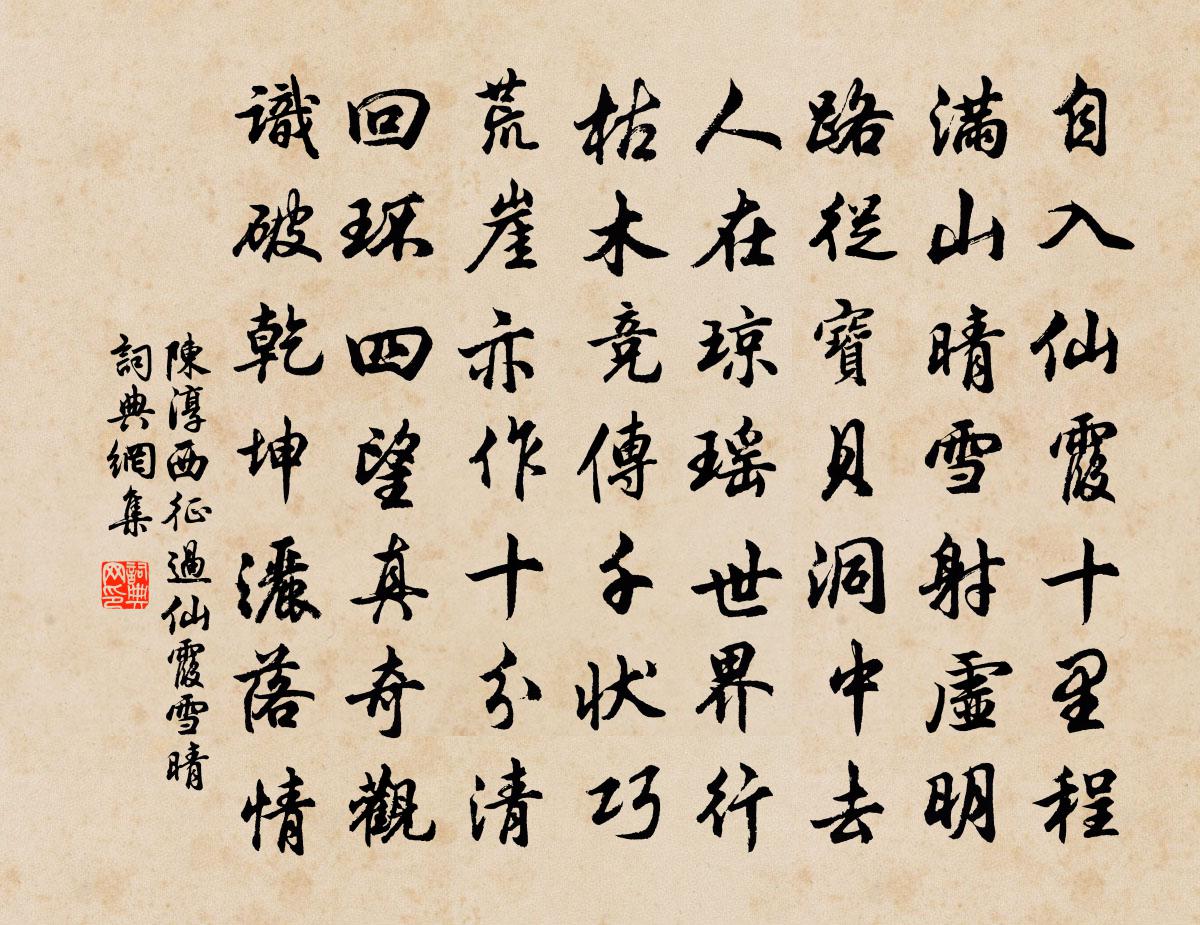 自入仙霞十里程
滿山晴雪射虛明
路從寶貝洞中去
人在琼瑶世界行
枯木竞傳千状巧
荒崖亦作十分清
回环四望真奇觀
識破乾坤灑落情
陳淳西征過仙霞雪晴
詞典網集
詞典网印